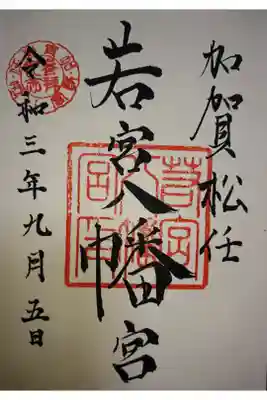 加賀松任
若宮八幡宮
令和三年九月五日